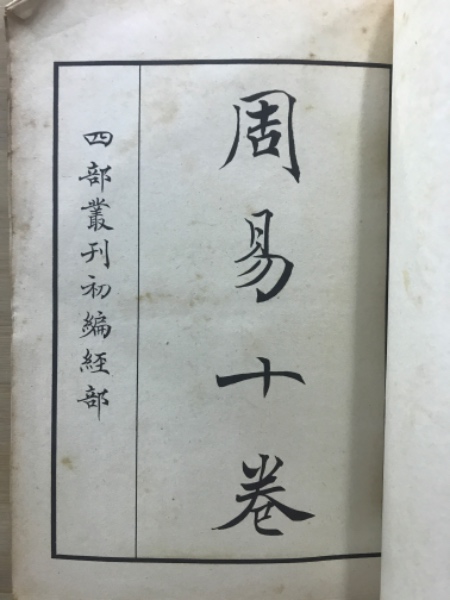 周易十卷
四部叢刊初編經部